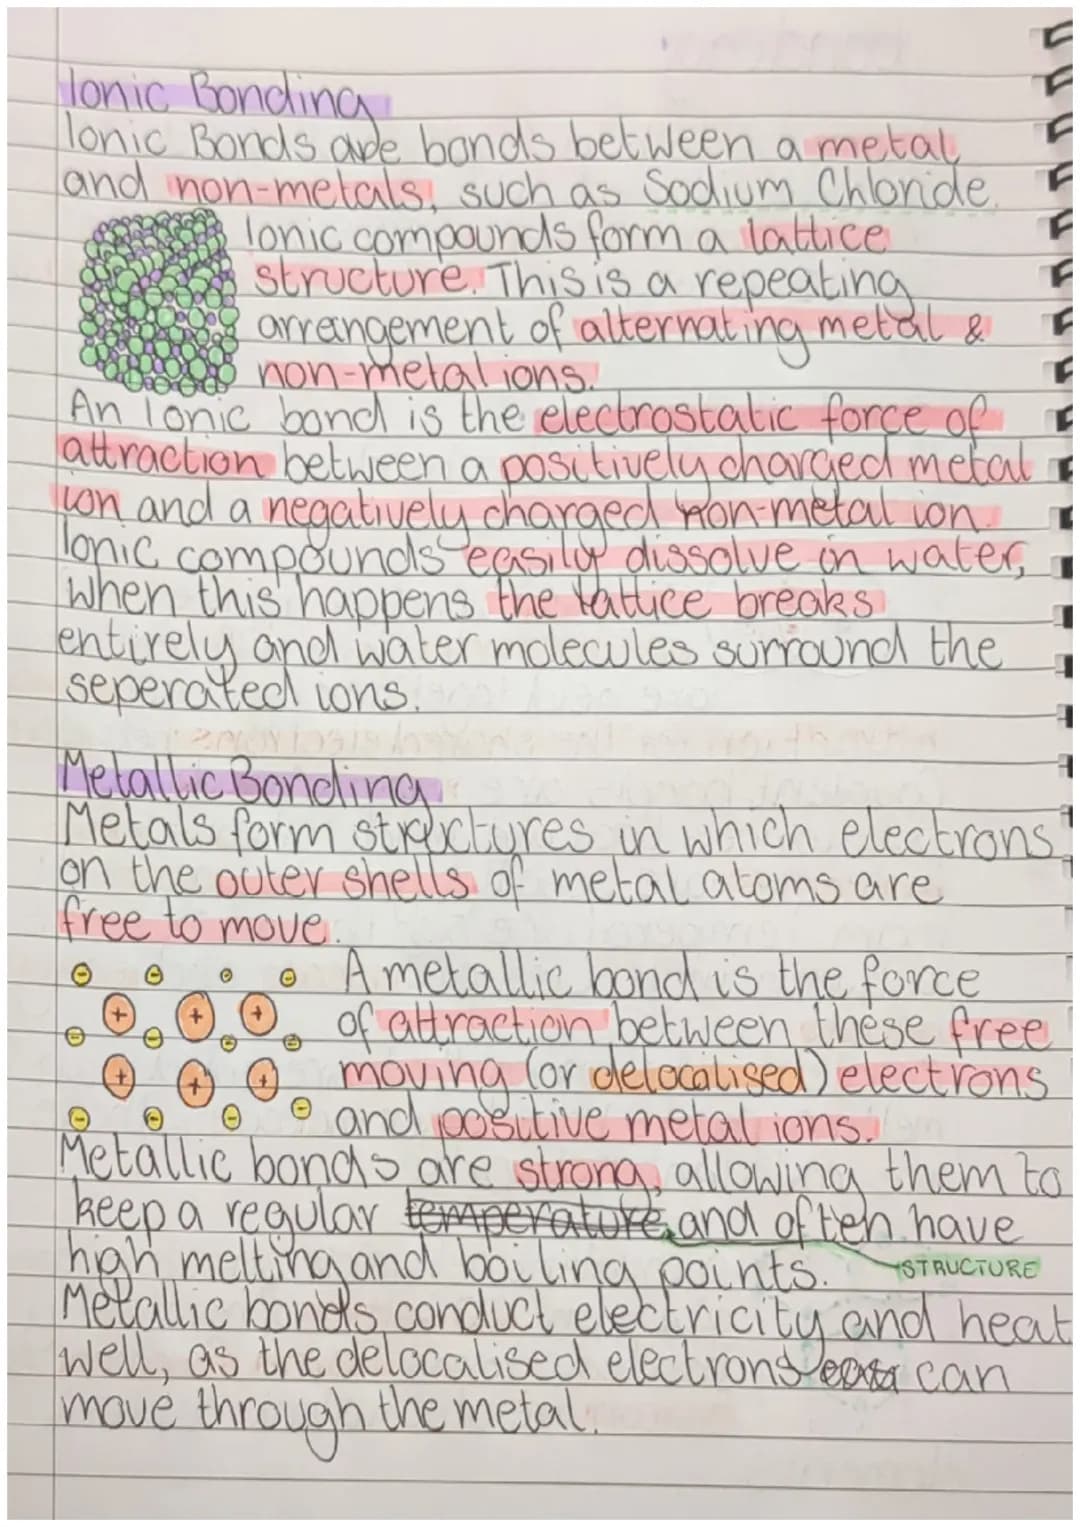 Ionic Bonding
Ionic Bonds are bonds between a metal
and non-metals, such as Sodium Chloride.
Ionic compounds form a lattice
structure. This is a repeating
arrangement of alternating metal &
non-metal ions.
An Ionic bond is the electrostatic force of
attraction between a positively charged metal
ion and a negatively charged non-metal ion.
Ionic compounds easily dissolve in water,
when this happens the lattice breaks
entirely and water molecules surround the
seperated ions.
Metallic Bonding
Metals form structures in which electrons
on the outer shells of metal atoms are
free to move.
A metallic bond is the force
of attraction between these free
moving (or delocalised) electrons
and positive metal ions.
Metallic bonds are strong, allowing them to
keep a regular temperature and often have
high melting and boiling points.
STRUCTURE
Metallic bonds conduct electricity and heat
well, as the delocalised electrons can
move through the metal.